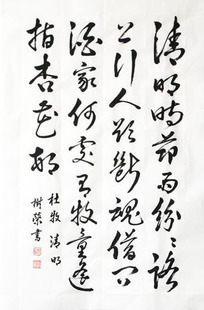 清明時節雨紛紛路
上行人欲斷魂借問
酒家何處有牧童遙
指杏花村
杜牧清明
樹榮書